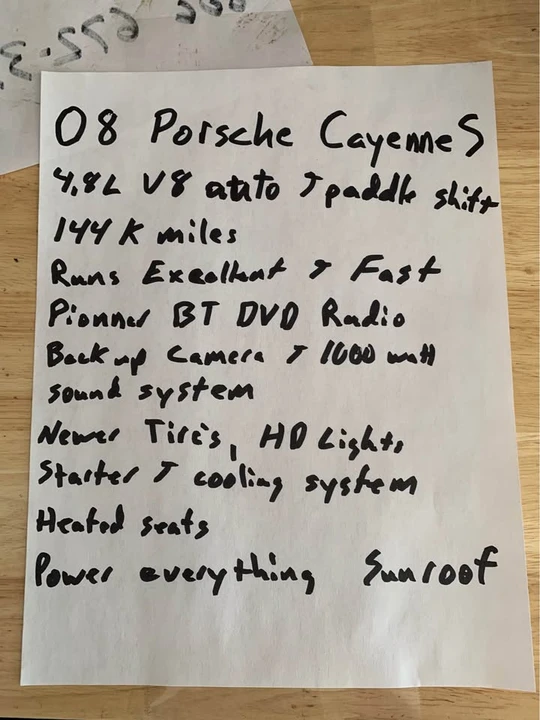 08 Porsche Cayenne S
4.8L V8 auto + paddle shift
144K miles
Runs Excellent + Fast
Pionner BT DVD Radio
Back up Camera + 1000 watt
sound system
Newer Tire's, HD Lights,
Starter + cooling system
Heated seats
Power everything Sunroof